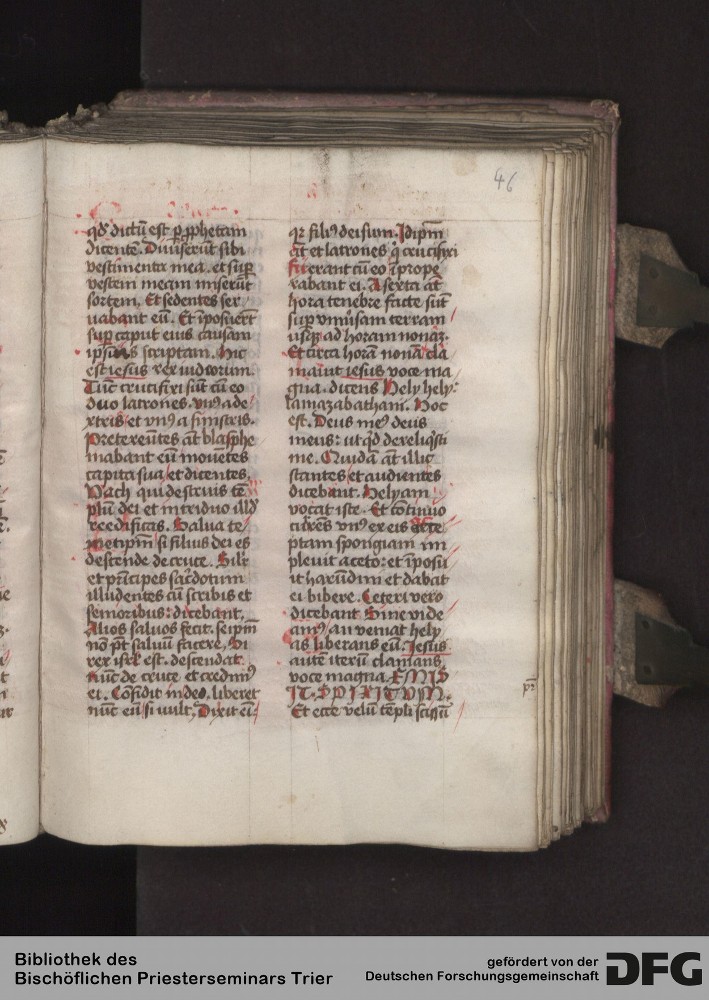 46
qd' dictū est ꝑ ꝓphetam
dicentē. Diuiserūt sibi
vestimenta mea. et suꝑ
vestem meam miserūt
sortem. Et sedentes ser
uabant eū. Et īposuerūt
suꝑ caput eius causam
ipsius scriptam. Hic
est iesus rex iudeorum.
Tūc crucifixi sūt cū eo
duo latrones. vnꝰ a de
xtris et vnꝰ a sinistris.
Pretereūtes āt blasphe
mabant eū mouētes
capita sua et dicentes.
Vach qui destruis tē
plū dei et in triduo illd'
reedificas. Salua te
metipm̄ si filius dei es
descende de cruce. Silr
et prīcipes sacͬdotum
illudentes cū scribis et
senioribus: dicebant.
Alios saluos fecit. seipm̄
nō pt̄ saluū facere. Si
rex isrl' est. descendat
nūc de cruce et credimꝰ
ei. Cōfidit in deo. liberet
nūc eū si vult. Dixit ei̅
qꝛ filiꝰ dei sum. Idipm̄
āt et latrones q̇ crucifixi
fuerant cū eo īprope
rabant ei. A sexta āt
hora tenebre facte sūt
suꝑ vniūsam terram
usqꝫ ad horam nonaꝫ.
Et circa horā nonā cla
mauit iesus voce ma
gna. dicens Hely hely:
lamazabathani. Hoc
est. Deus meꝰ deus
meus: ut qd dereliq̇sti
me. Quidā āt illic
stantes et audientes
dicebant. Helyam
vocat iste. Et cōtinuo
currēs vnꝰ ex eis acce
ptam spongiam im
pleuit aceto: et īposu
it harūdini et dabat
ei bibere. Ceteri vero
dicebant Sine vide
amꝰ an veniat hely
as liberans eū. Iesus
autē iterū clamans
voce magna. EMIS
IT. SPIRITVM.
Et ecce velū tēpli scissū
pꝛ
Bibliothek des
Bischöflichen Priesterseminars Trier
gefördert von der
Deutschen Forschungsgemeinschaft
DFG